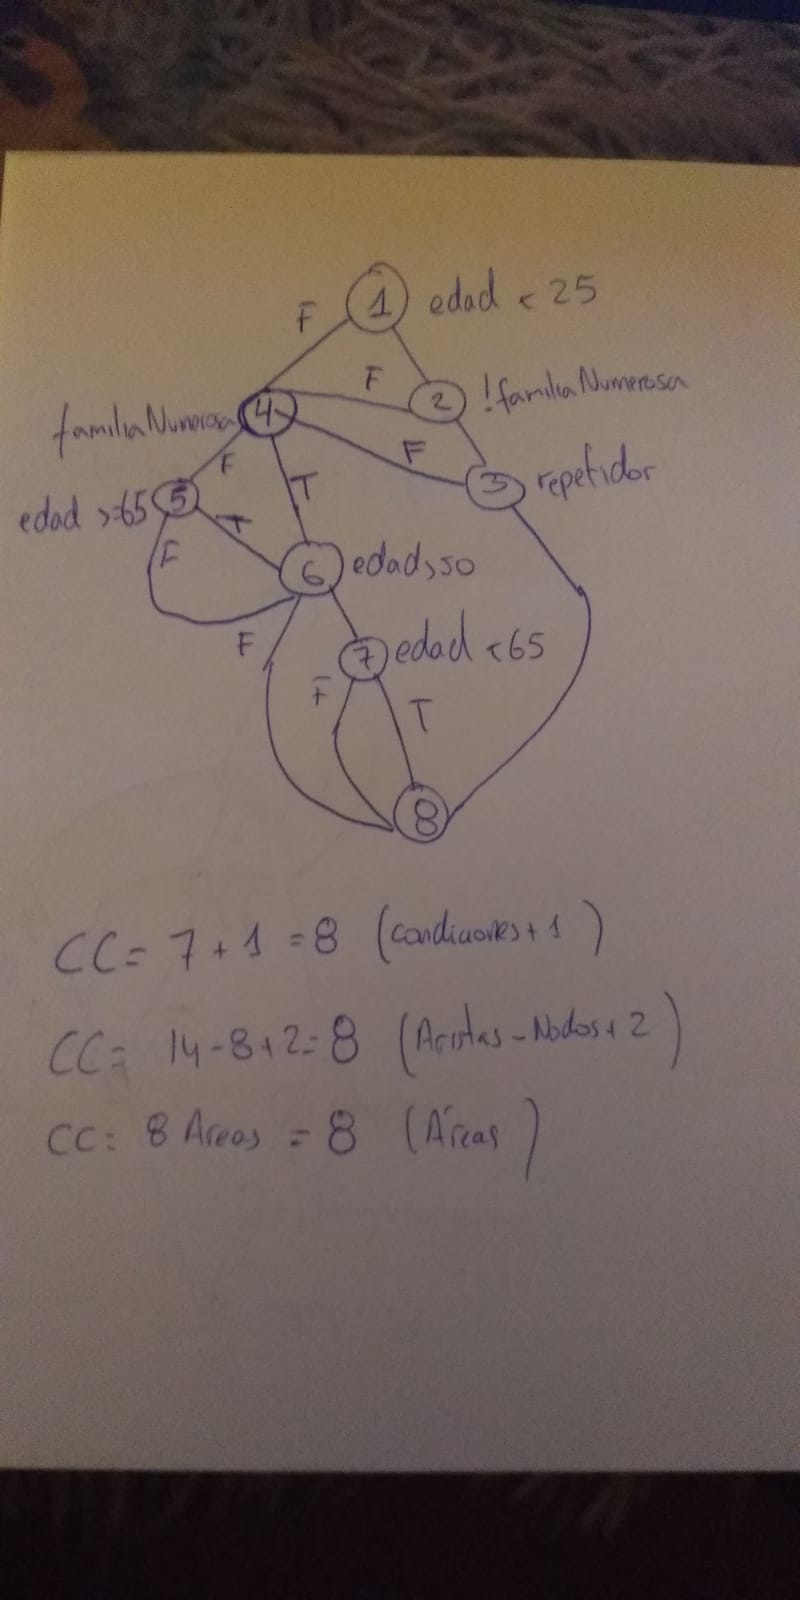 1 edad < 25
F
F 2 !familiaNumerosa
familiaNumerosa 4
F 3 repetidor
F T
edad >=65 5 T
F 6 edad>50
F 7 edad <65
F T
8
CC= 7+1 =8 (condiciones+1)
CC= 14-8+2=8 (Aristas-Nodos+2)
CC= 8 Areas = 8 (Áreas)